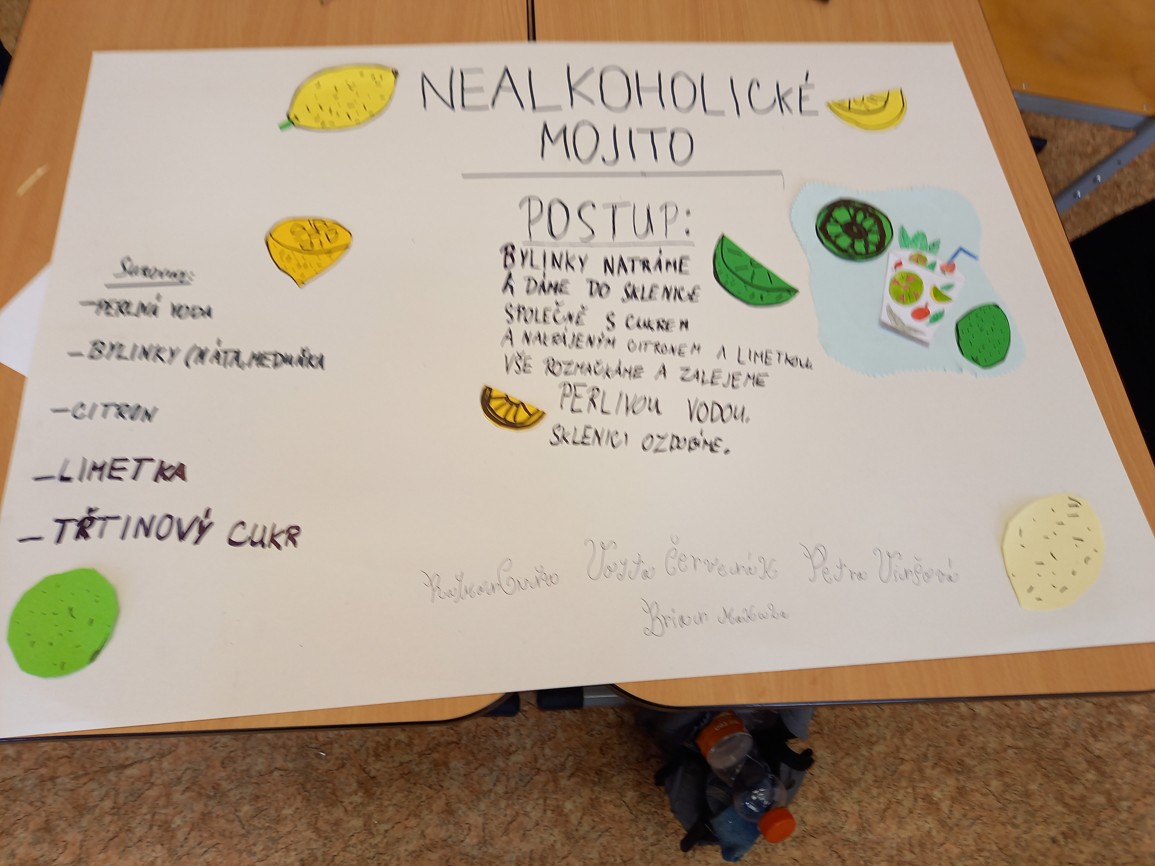 NEALKOHOLICKÉ
MOJITO
POSTUP:
BYLINKY NATRÁME
A DÁME DO SKLENICE
SPOLEČNĚ S CUKREM
A NAKRÁJENÝM CITRONEM A LIMETKOU.
VŠE ROZMAČKÁME A ZALEJEME
PERLIVOU VODOU.
SKLENICI OZDOBÍME.
Suroviny:
-PERLIVÁ VODA
-BYLINKY (MÁTA, MEDUŇKA
-CITRON
-LIMETKA
-TŘTINOVÝ CUKR
Vojta Červeňák Petra
Brian